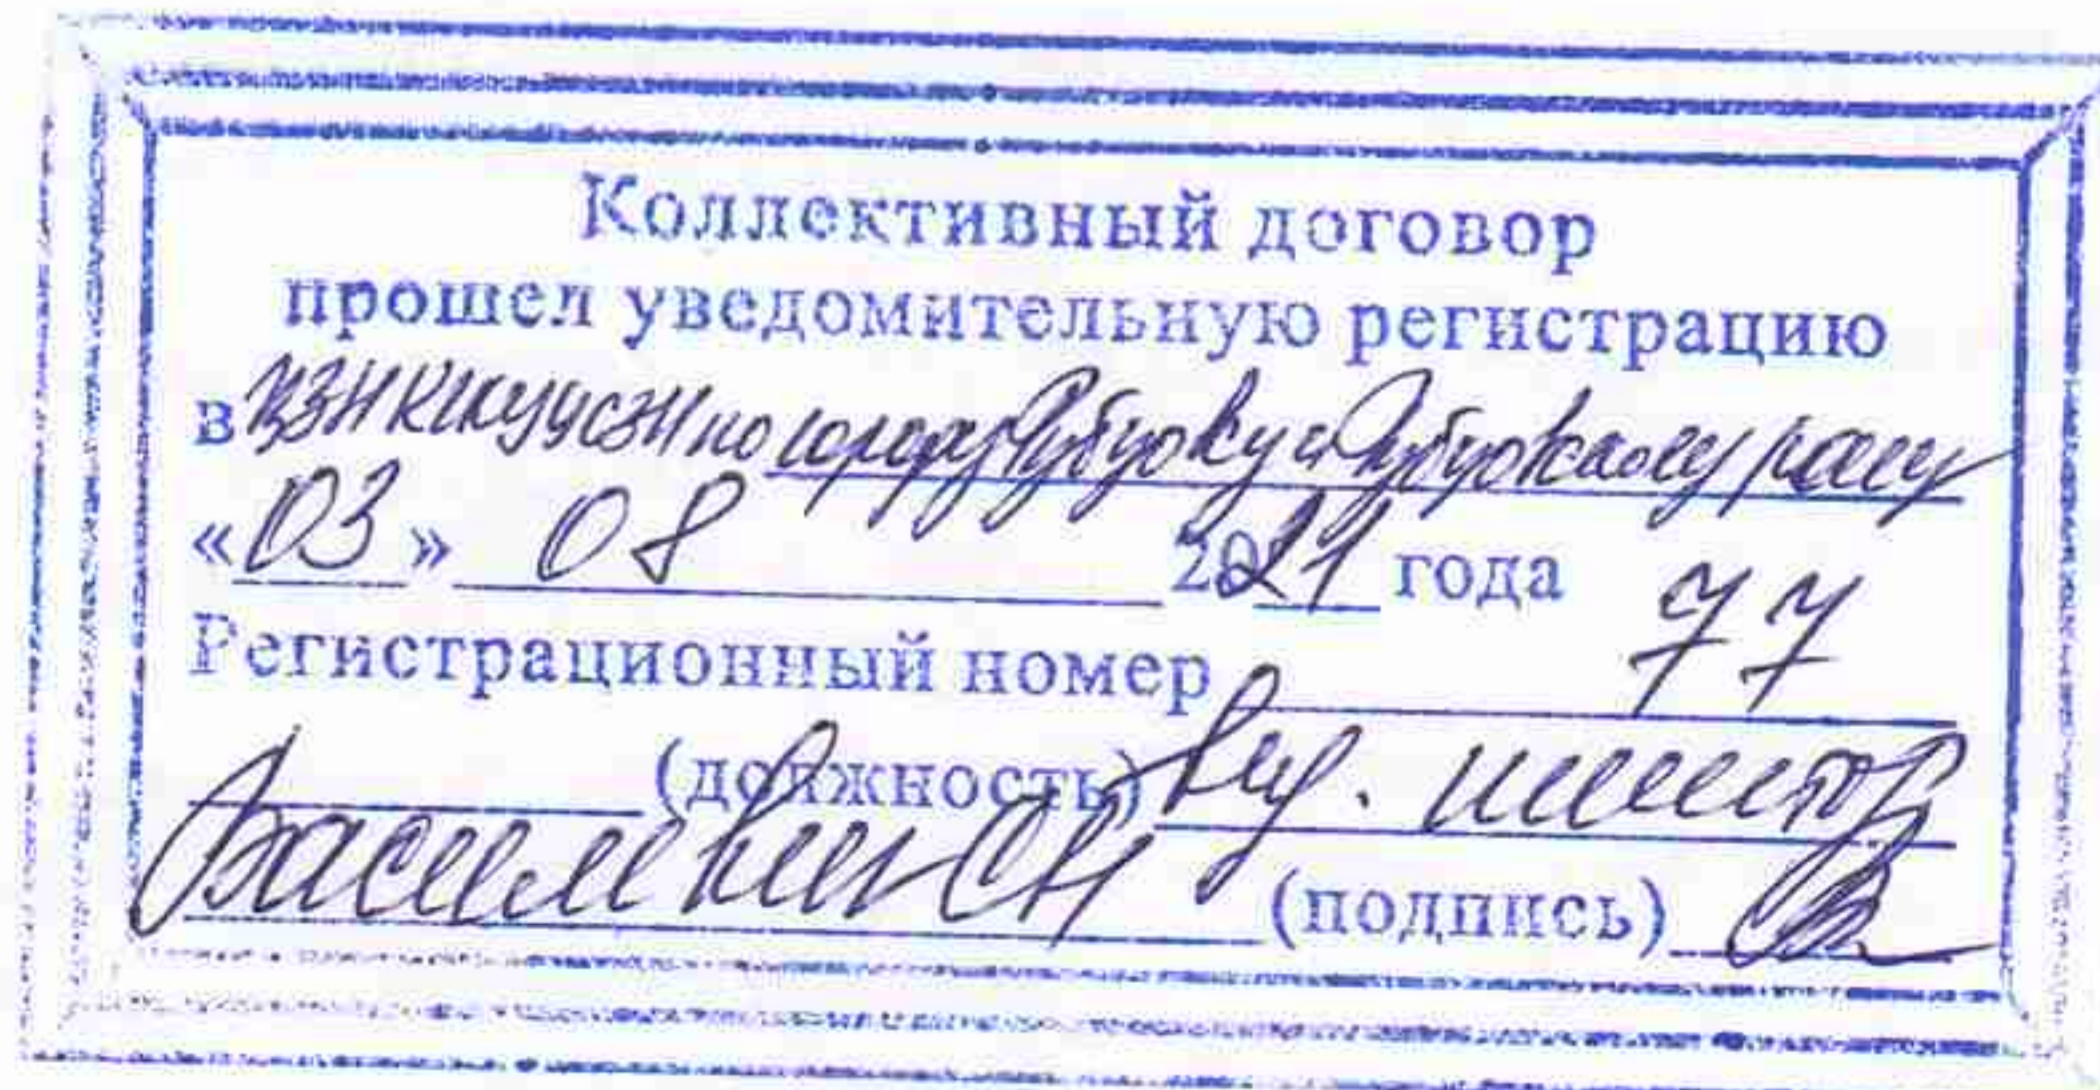 Коллективный договор
прошел уведомительную регистрацию
в ЦЗН КГКУ УСЗН по городу Рубцовску и Рубцовскому р-ону
«03» 08 2021 года
Регистрационный номер 77
(должность) вед. инспектор
Василевич СН (подпись)